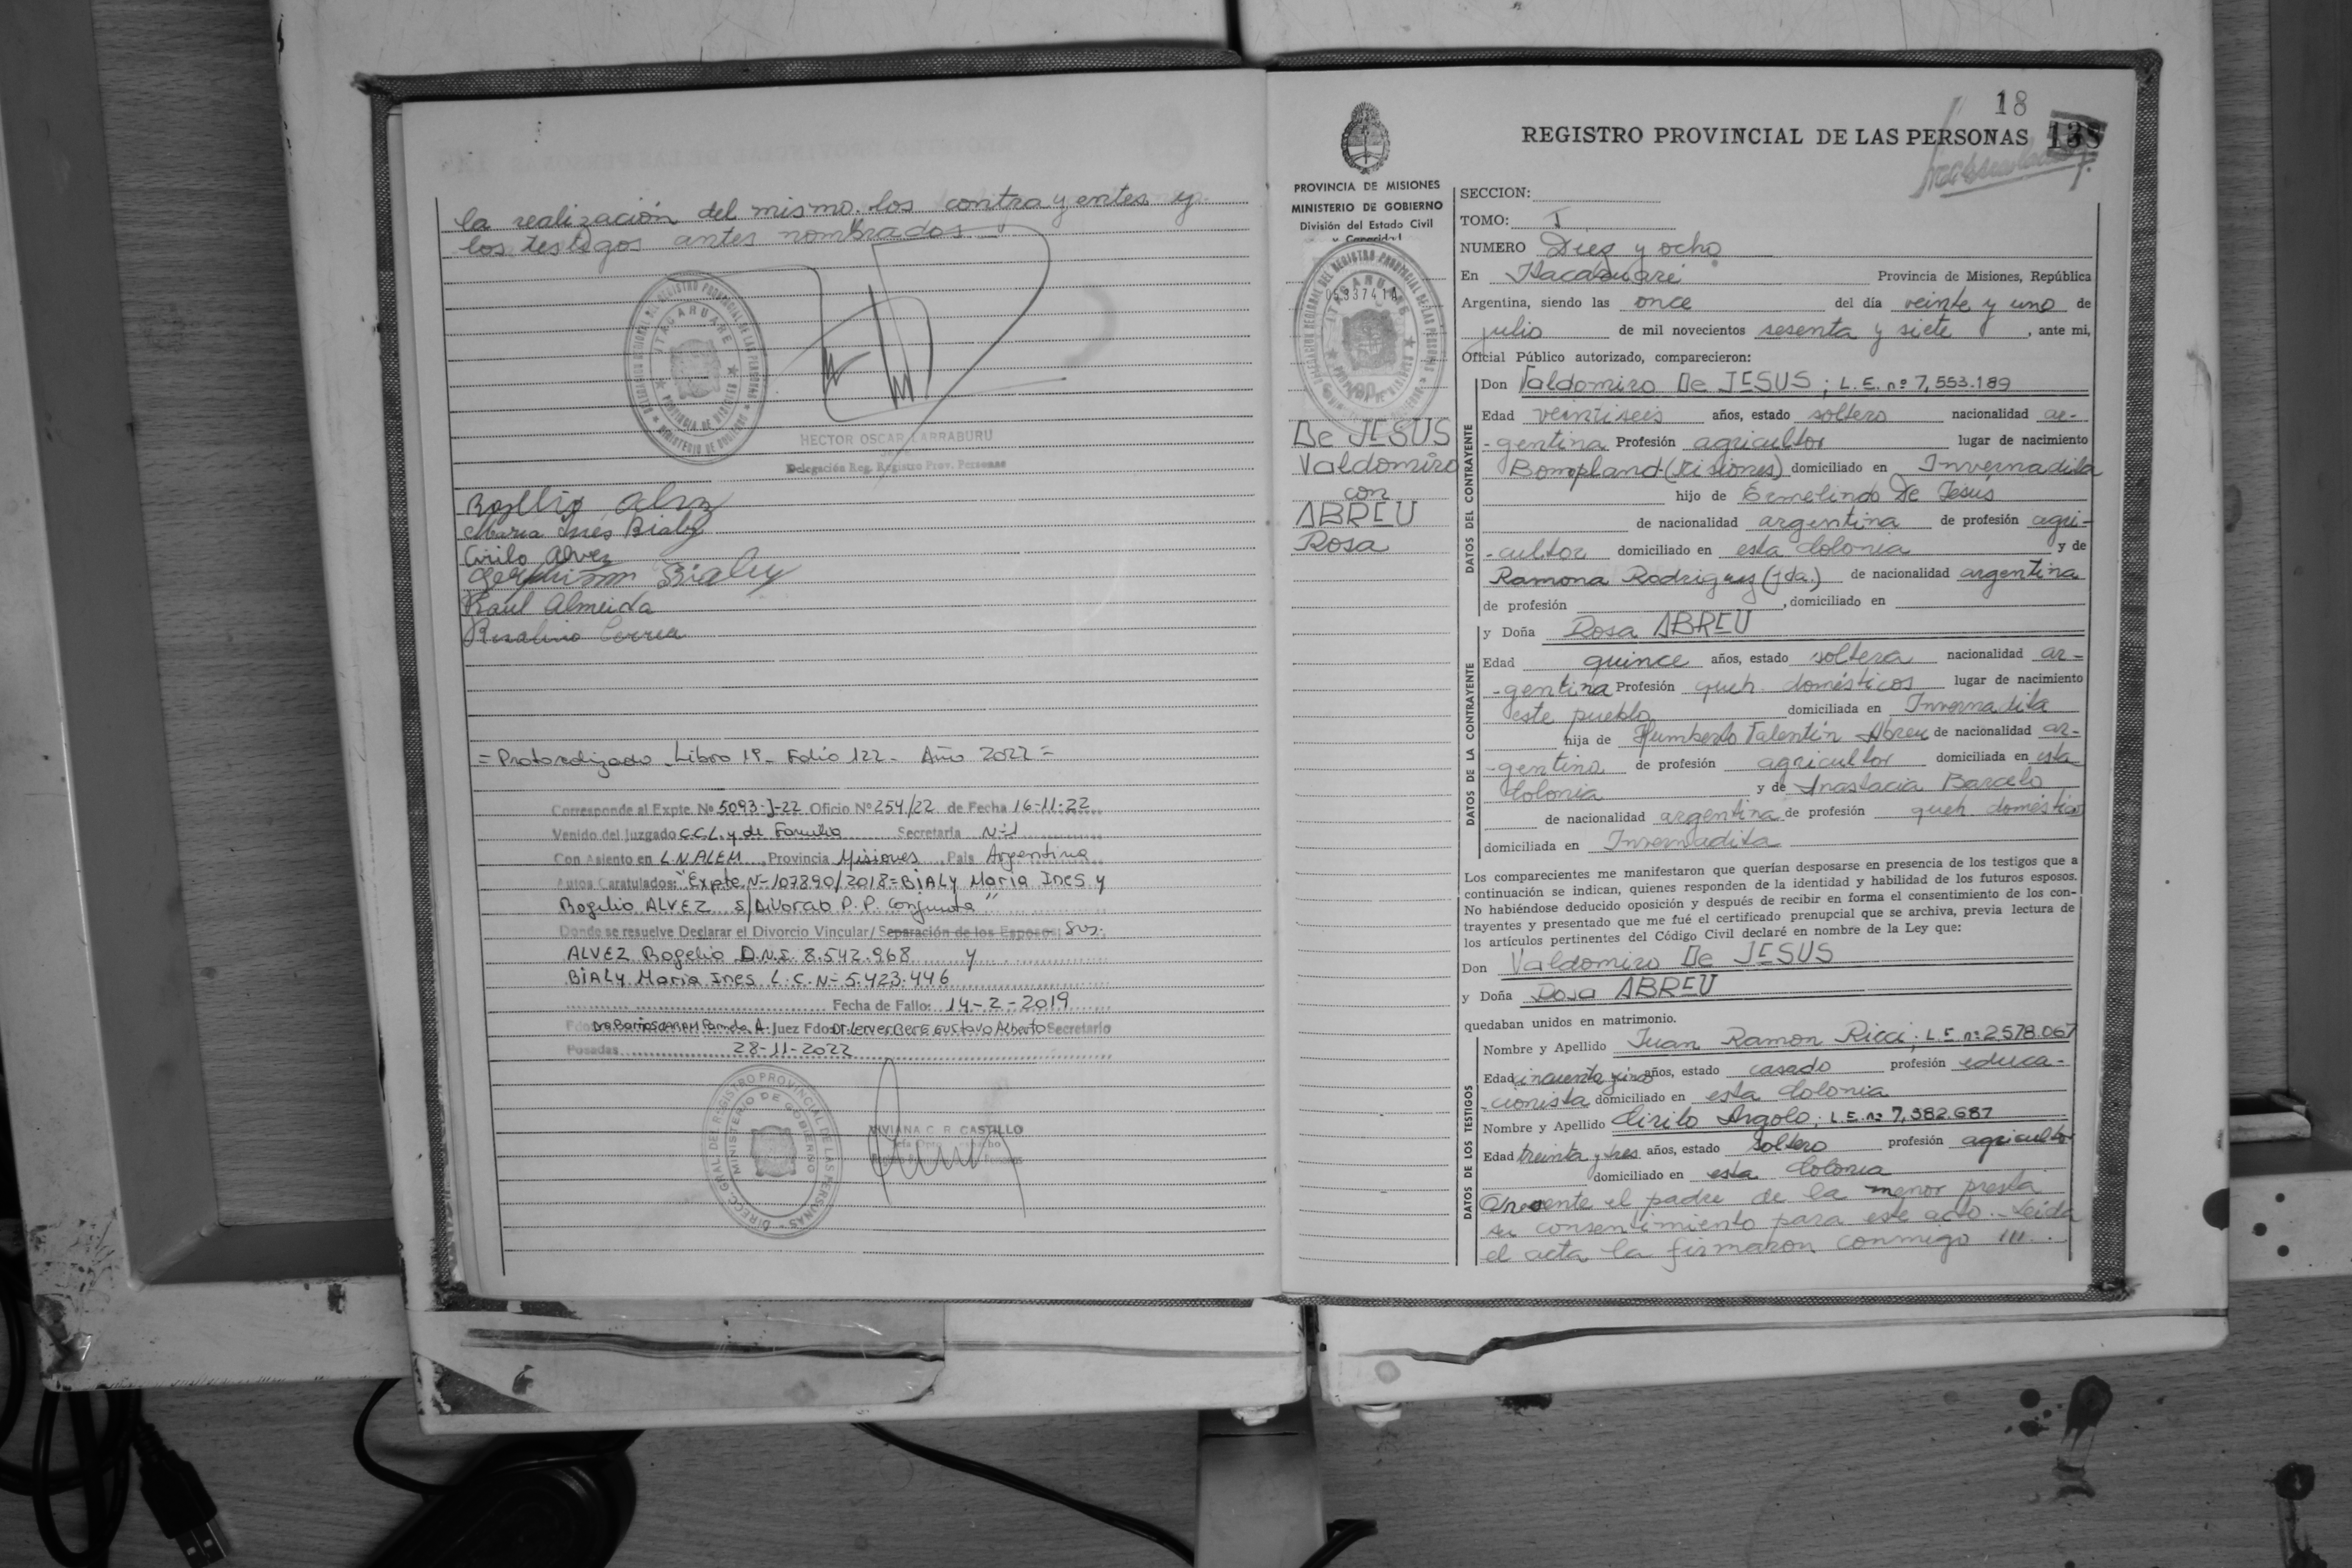 la realización del mismo. los contrayentes y
los testigos antes nombrados
DELEGACION REGIONAL DEL REGISTRO PROVINCIAL DE LAS PERSONAS
ITACARUARE
PROVINCIA DE MISIONES
MINISTERIO DE GOBIERNO
HECTOR OSCAR LARRABURU
Delegación Reg. Registro Prov. Personas
Maria Inés Bialy
Cirilo Alvez
Bialy
Raul Almeida
Rosalino Correa
= Protocolizado Libro 1º- Folio 122- Año 2022 =
Corresponde al Expte. Nº 5093-J-22 Oficio Nº 254/22 de Fecha 16-11-22
Venido del Juzgado C.C.L. y de Familia Secretaria Nº1
Con Asiento en L.N.ALEM Provincia Misiones País Argentina
Autos Caratulados: "Expte Nº 107890/2018 = BIALY Maria Ines y
Rogelio ALVEZ S/Divorcio P.P. Conjunta"
Donde se resuelve Declarar el Divorcio Vincular/ Separación de los Esposos: Sres.
ALVEZ Rogelio D.N.I. 8.542.968 y
BIALY Maria Ines L.C.Nº 5.423.446
Fecha de Fallo: 14-2-2019
Pamela A. Juez Fdo: Gustavo Alberto Secretario
Posadas 28-11-2022
DIRECC. GRAL DEL REGISTRO PROVINCIAL DE LAS PERSONAS
MINISTERIO DE GOBIERNO
VIVIANA C. R. CASTILLO
18
REGISTRO PROVINCIAL DE LAS PERSONAS 138
PROVINCIA DE MISIONES
MINISTERIO DE GOBIERNO
División del Estado Civil
y Capacidad
0533741A
De JESUS
Valdomiro
con
ABREU
Rosa
SECCION:
TOMO: I
NUMERO Diez y ocho
En Itacaruaré Provincia de Misiones, República
Argentina, siendo las once del día veinte y uno de
julio de mil novecientos sesenta y siete, ante mi,
Oficial Público autorizado, comparecieron:
DATOS DEL CONTRAYENTE
Don Valdomiro De JESUS; L.E. nº 7,553.189
Edad veintiseis años, estado soltero nacionalidad ar-
-gentina Profesión agricultor lugar de nacimiento
Bompland-(Misiones) domiciliado en Invernadita
hijo de Ermelindo De Jesús
de nacionalidad argentina de profesión agri-
-cultor domiciliado en esta Colonia y de
Ramona Rodriguez (fda.) de nacionalidad argentina
de profesión , domiciliado en
DATOS DE LA CONTRAYENTE
y Doña Rosa ABREU
Edad quince años, estado soltera nacionalidad ar-
-gentina Profesión queh. domésticos lugar de nacimiento
este pueblo domiciliada en Invernadita
hija de Humberto Valentín Abreu de nacionalidad ar-
-gentino de profesión agricultor domiciliada en esta
Colonia y de Anastacia Barcelo
de nacionalidad argentina de profesión queh. doméstico
domiciliada en Invernadita
Los comparecientes me manifestaron que querían desposarse en presencia de los testigos que a
continuación se indican, quienes responden de la identidad y habilidad de los futuros esposos.
No habiéndose deducido oposición y después de recibir en forma el consentimiento de los con-
trayentes y presentado que me fué el certificado prenupcial que se archiva, previa lectura de
los artículos pertinentes del Código Civil declaré en nombre de la Ley que:
Don Valdomiro De JESUS
y Doña Rosa ABREU
quedaban unidos en matrimonio.
DATOS DE LOS TESTIGOS
Nombre y Apellido Juan Ramon Ricci; L.E nº 2578.067
Edad años, estado casado profesión educa-
-cionista domiciliado en esta Colonia
Nombre y Apellido Cirilo Argolo; L.E.nº 7,982.687
Edad treinta y tres años, estado soltero profesión agricultor
domiciliado en esta Colonia
Presente el padre de la menor presta
su consentimiento para este acto.- Leida
el acta la firmaron conmigo ///..